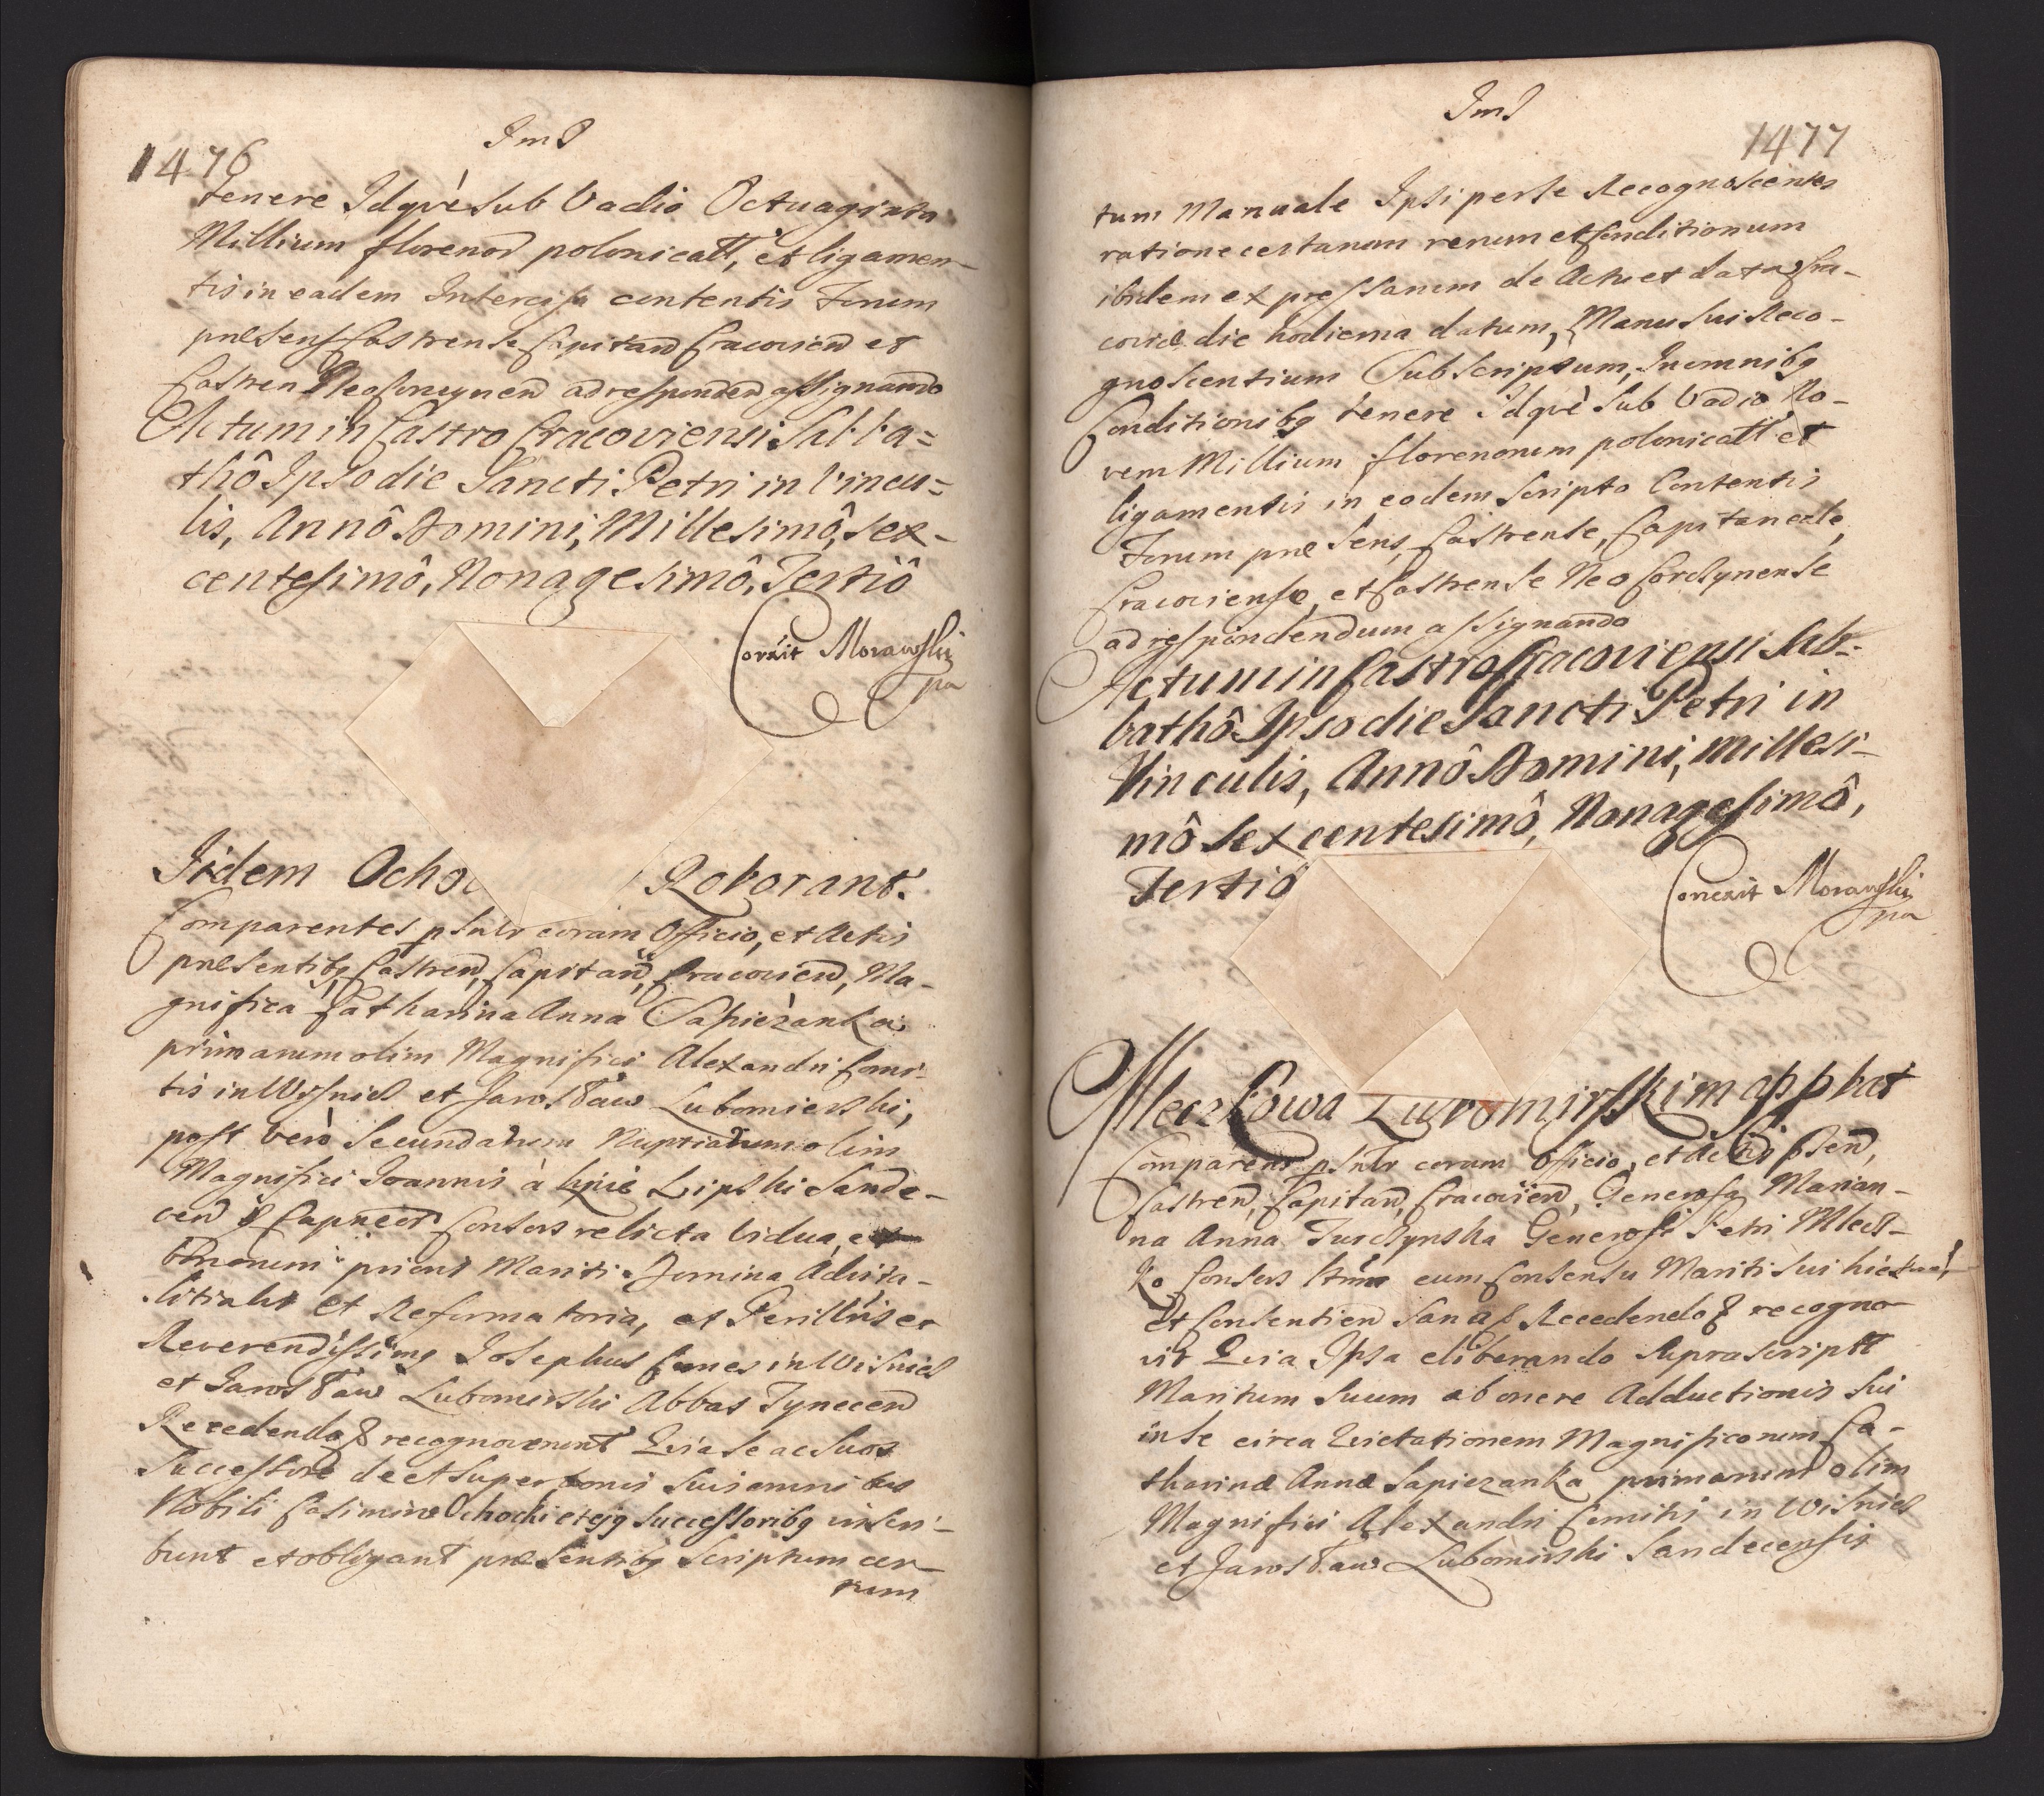 1476
Jms
tenere Idqvè Sub Vadio Octuaginta
Millium florenor polonicall, et ligamen-
tis in eadem Intercisa contentis Forum
præsens Castrense Capitand Cracovien et
Castren Neoforcynen ad responden assignando
Actum in Castro Cracoviensi Sabba=
thô Ipso die Sancti Petri in Vincu=
lis, Annô Domini, Millesimô, Sex-
centesimô, Nonagesimô, Tertiô
Corexit Morawski
pa
Iidem Ocho Roborant.
Comparentes psnlr coram Officio, et Actis
præsentibq Castren, Capitan, Cracovien, Ma-
gnifica Catharina Anna Sapiezanka
primarum olim Magnifici Alexandri Comi-
tis in Wisnicz et Jarosław Lubomierski,
post verò Secundarum Nuptiarum olim
Magnifici Joannis à Lipie Lipski Sande-
cen Capnei Consors relicta Vidua,
bonorum prioris Mariti Domina Advita-
litialis et Reformatoria, et Perillris et
Reverendissimq Josephus Comes in Wisnicz
et Jarosław Lubomirski Abbas Tynecen
Recedendo & recognoverunt Quia Se ac Suos
Successore de et Super bonis Suis omnibus
Nobili Casimiro Ochocki et ejq Successoribq inscri-
bunt et obligant præsentibq Scriptum cer-
tum
Jms
1477
tum Manuale Ipsi per Se Recognoscentes
ratione certarum rerum et Conditionum
ibidem expressarum de Actu et data Cra-
coviæ die hodierna datum, Manu Sui Reco-
gnoscentium Subscriptum, In omnibq
Conditionibq tenere Idqvè Sub Vadio No-
vem Millium florenorum polonicall et
ligamentis in eodem Scripto Contentis
Forum præsens, Castrense, Capitaneale,
Cracoviense, et Castrense Neo Corcynense
ad respondendum assignando
Actum in Castro Cracoviensi Sab-
bathô Ipso die Sancti Petri in
Vinculis, Annô Domini, Millesi-
mô Sexcentesimô, Nonagesimô,
Tertiô
Corexit Morawski
pa
Meczkowa Lubomirskim approbat
Comparens psnlr coram Officio, et Actis psen,
Castren, Capitan, Cracovien, Generosa Marian-
na Anna Turczynska Generosi Petri Mlecz-
ko Consors cum Consensu Mariti Sui hic
et Consentien Sana & Recedendo & recogno-
vit Quia Ipsa eliberando Supra Scriptt
Maritum Suum ab onere Adductionis Sui
in Se circa Qvietationem Magnificorum Ca-
tharinæ Annæ Sapiezanka primarum olim
Magnifici Alexandri Comitis in Wisnicz
et Jarosław Lubomirski Sandecensis